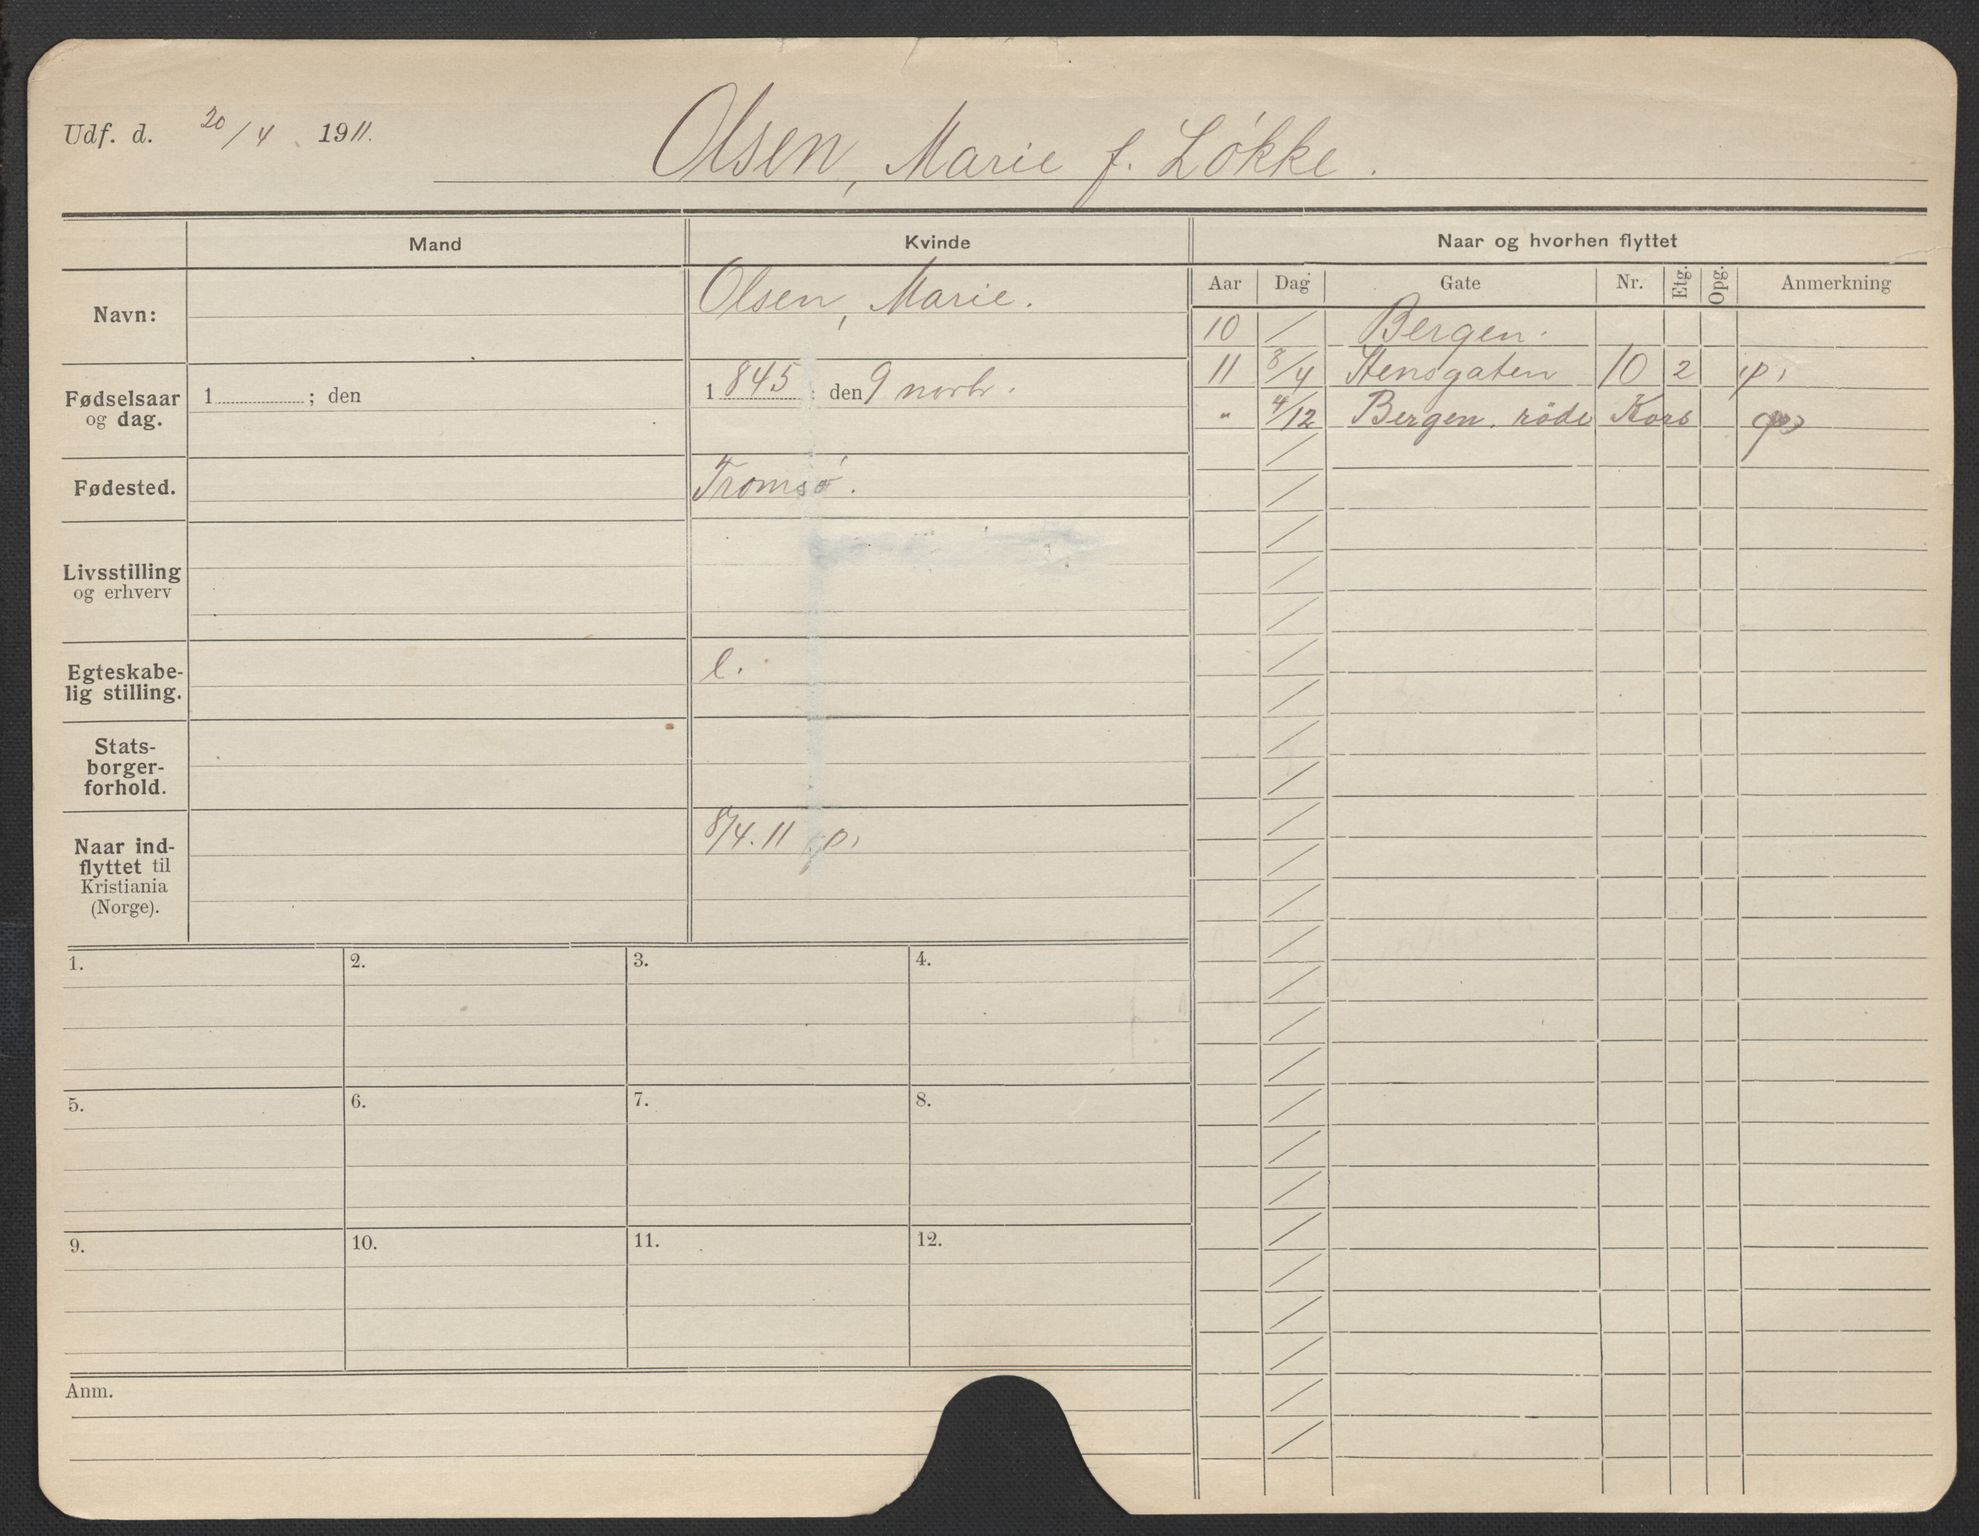 Udf. d. 20/4 1911.
Olsen, Marie f. Løkke.
Mand
Kvinde
Naar og hvorhen flyttet
Aar Dag Gate Nr. Etg. Opg. Anmerkning
Navn:
Olsen, Marie.
10 / Bergen.
11 8/4 Stensgaten 10 2 p.
" 4/12 Bergen. røde Kors
Fødselsaar
og dag.
1 ; den
1 845 ; den 9 novbr.
Fødested.
Tromsø.
Livsstilling
og erhverv
Egteskabe-
lig stilling.
e.
Stats-
borger-
forhold.
Naar ind-
flyttet til
Kristiania
(Norge).
8/4. 11 p.
1. 2. 3. 4.
5. 6. 7. 8.
9. 10. 11. 12.
Anm.